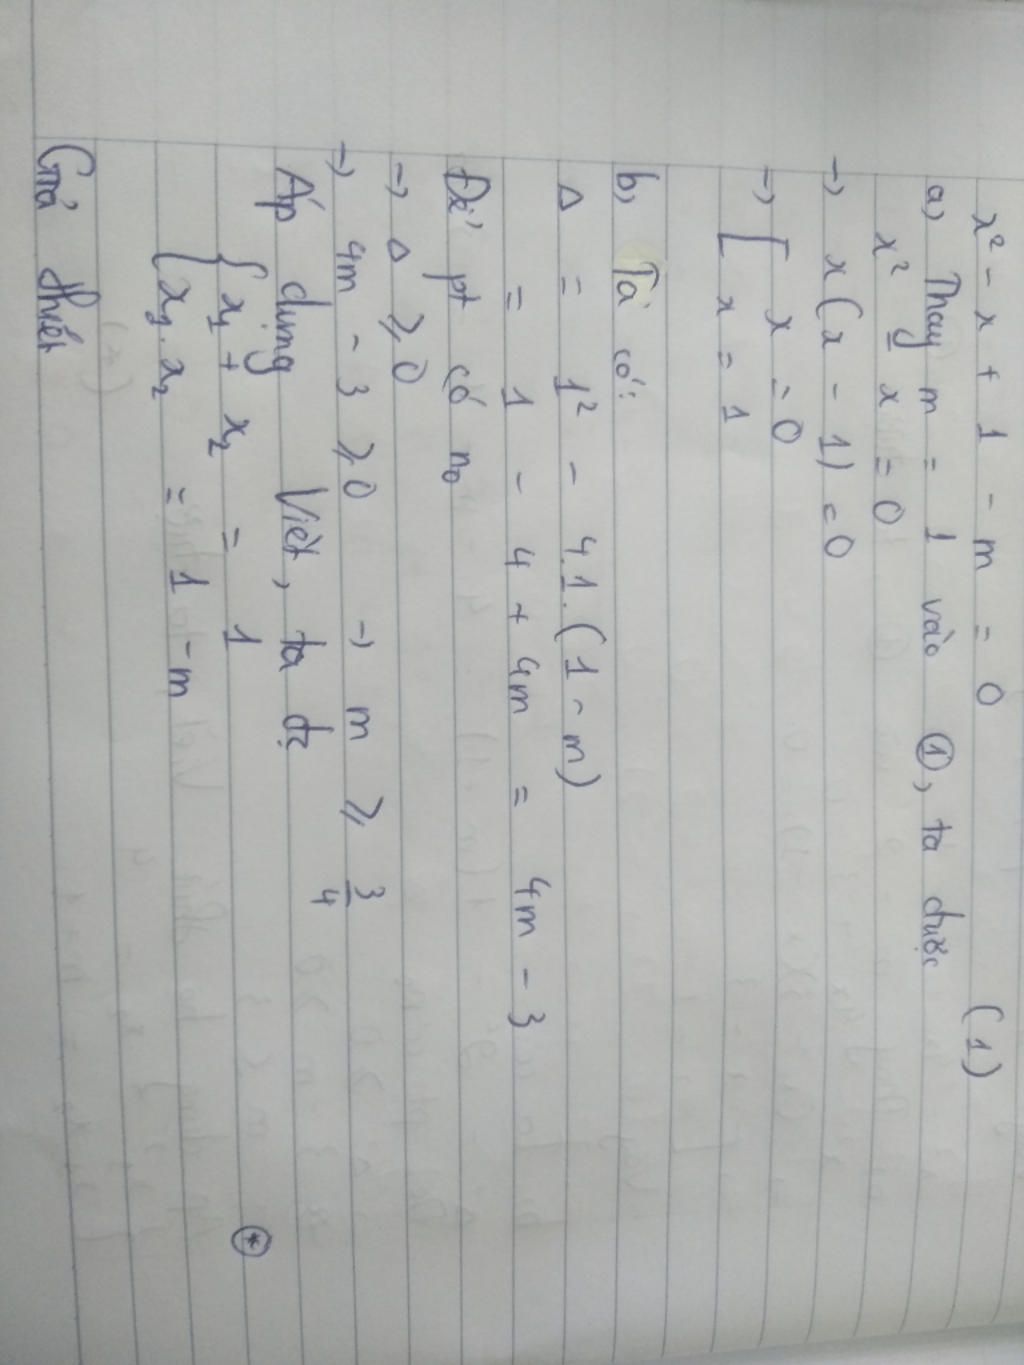 x² - x + 1 - m = 0 (1)
a) Thay m = 1 vào ①, ta được
x² - x = 0
→ x(x - 1) = 0
→ [ x = 0
[ x = 1
b) Ta có:
Δ = 1² - 4.1.(1 - m)
= 1 - 4 + 4m = 4m - 3
Để pt có n₀
→ Δ ⩾ 0
→ 4m - 3 ⩾ 0 → m ⩾ 3/4
Áp dụng Viét, ta đc
{ x₁ + x₂ = 1
{ x₁. x₂ = 1 - m ⊛
Giả thiết